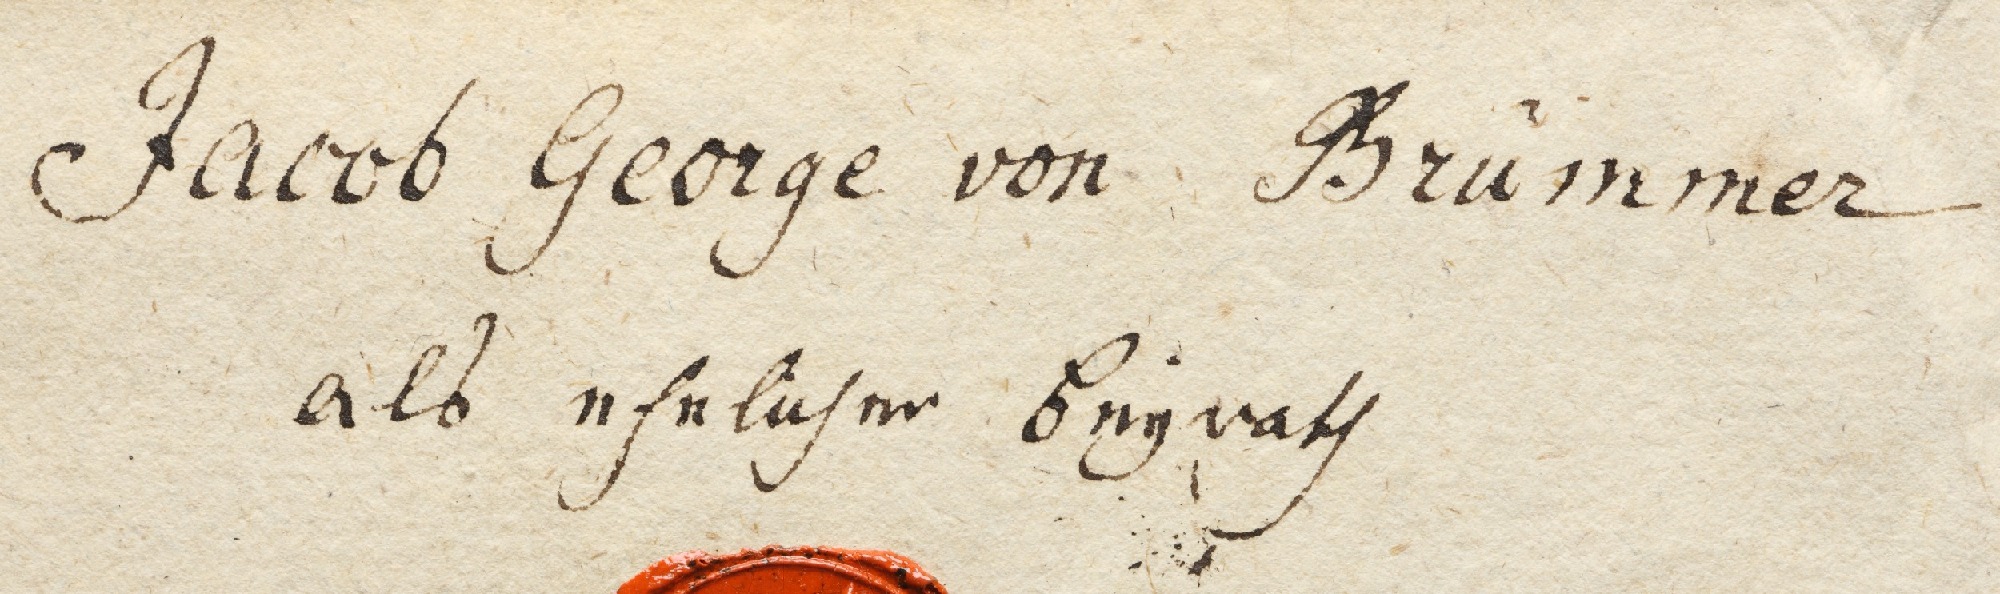 Jacob George von Brümmer
als ehelicher Beÿrath